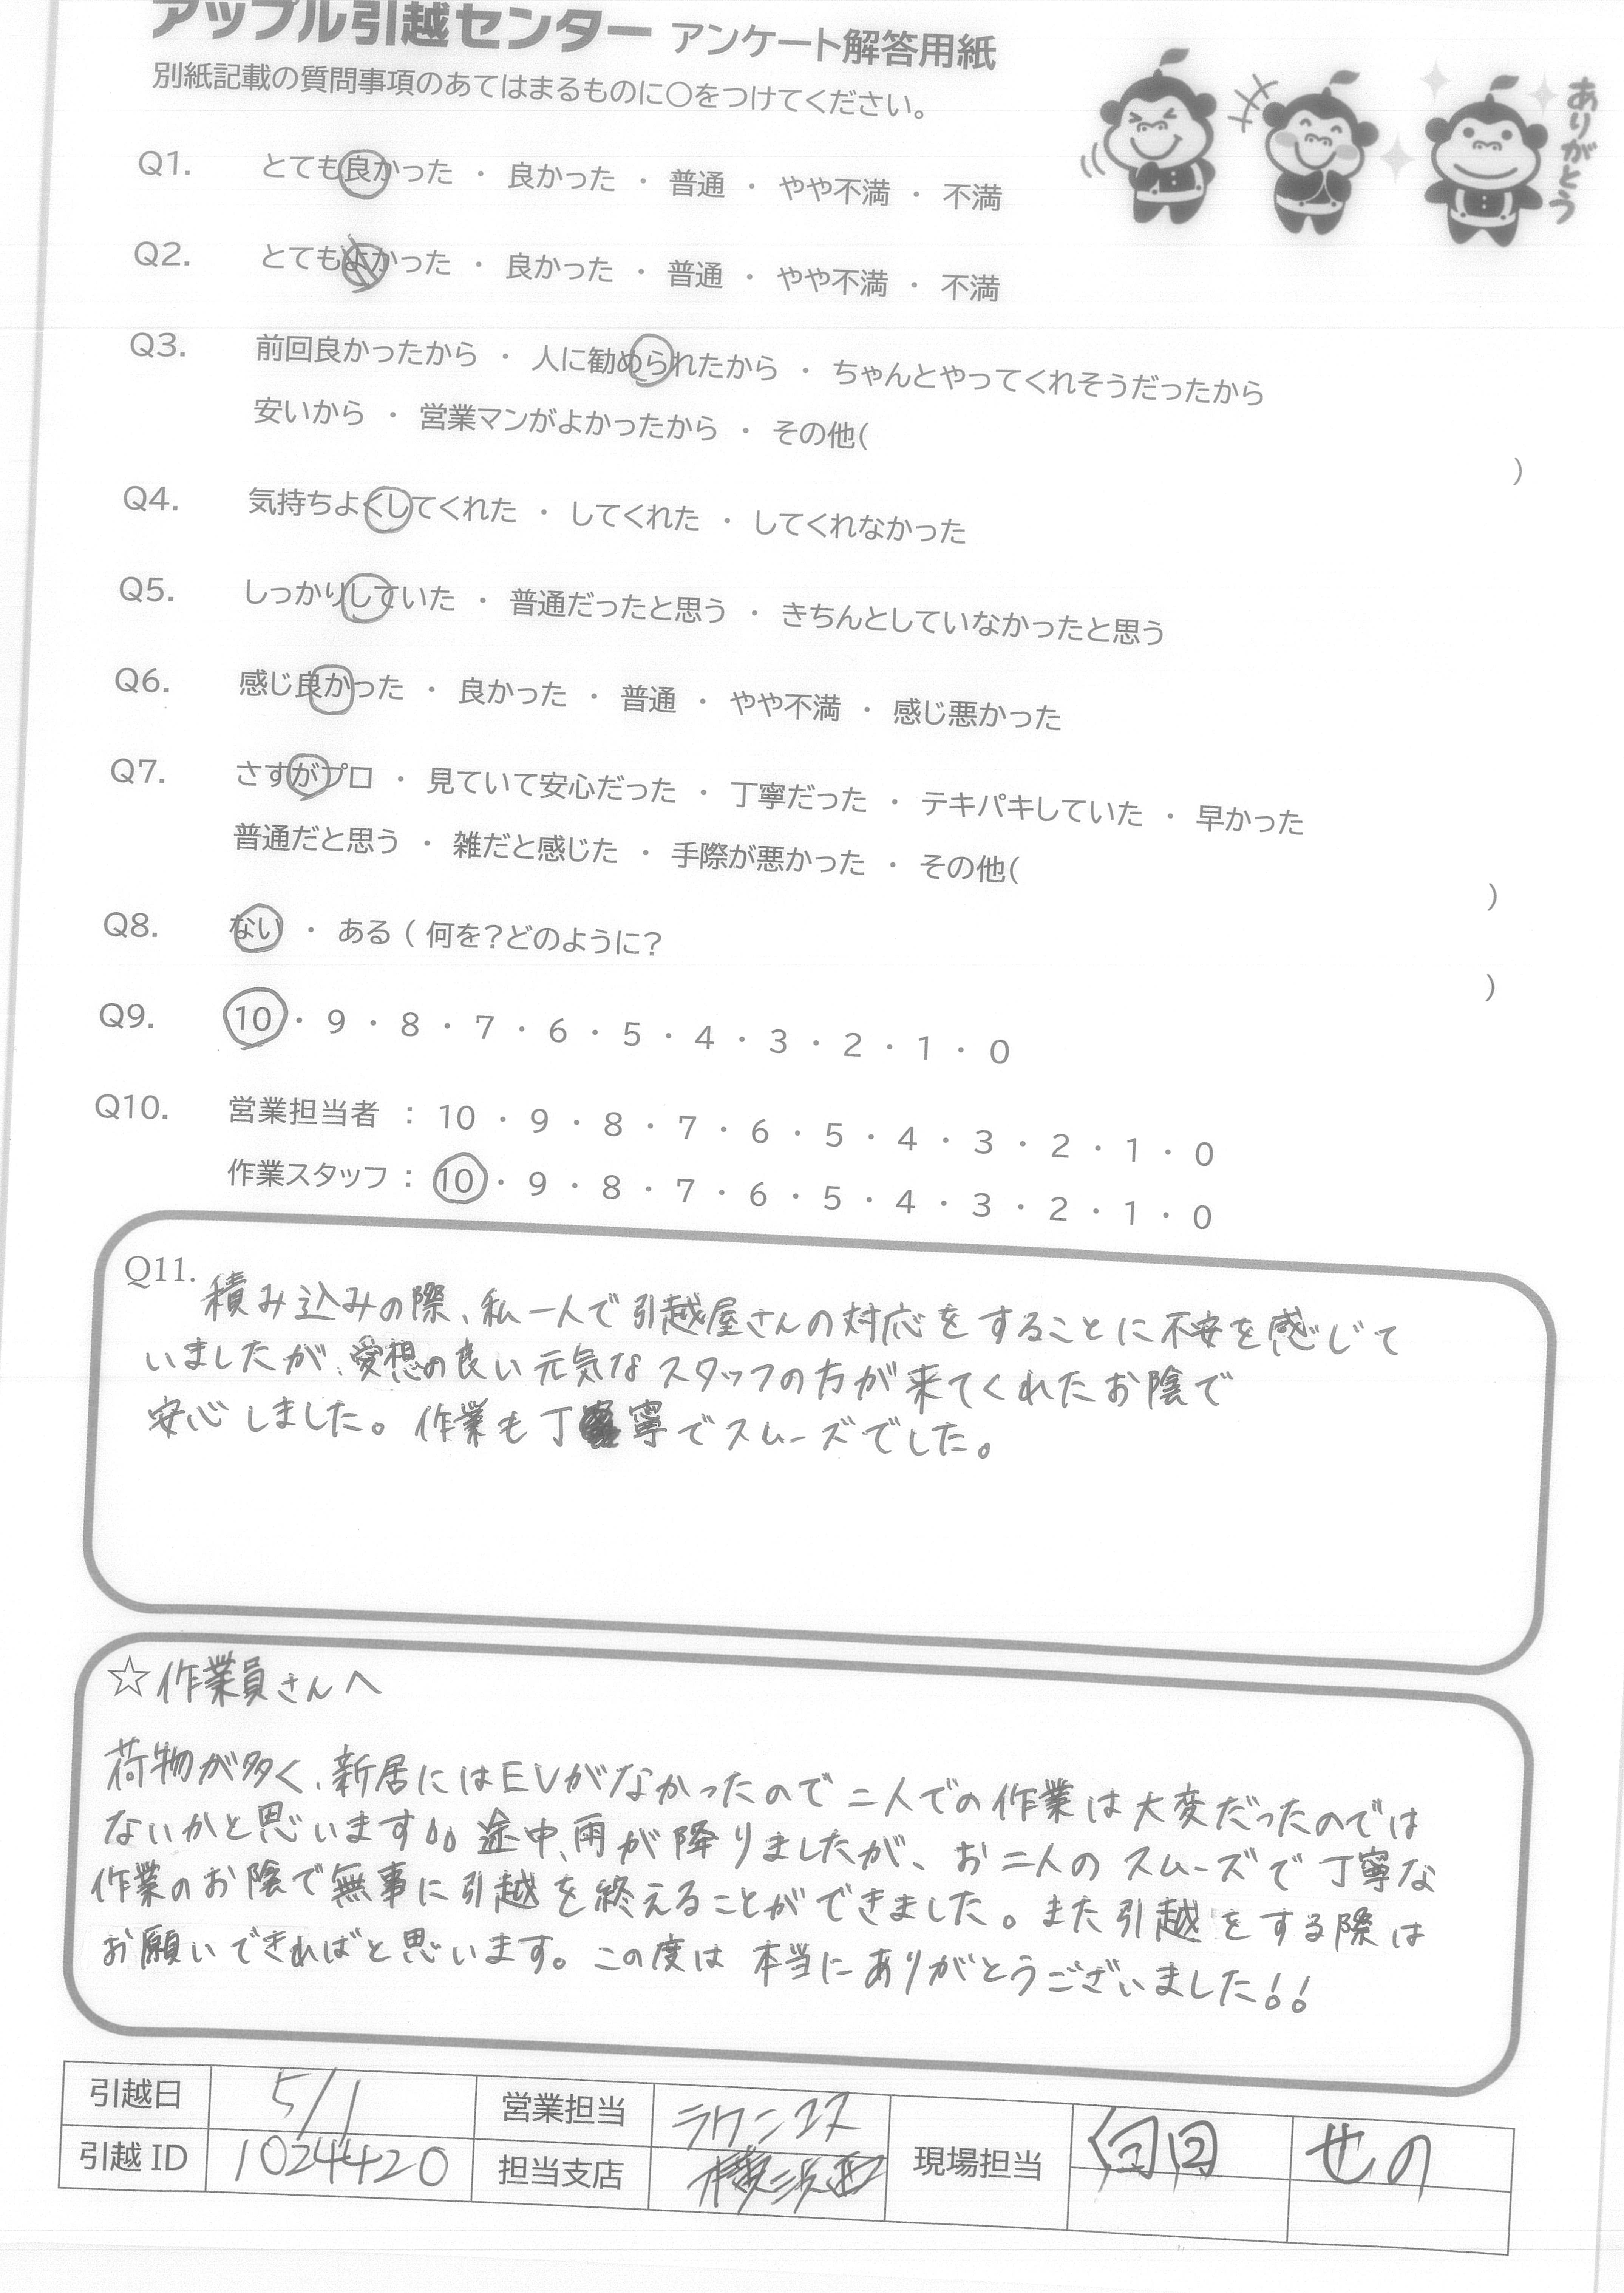 アップル引越センター アンケート解答用紙
別紙記載の質問事項のあてはまるものに〇をつけてください。
ありがとう
Q1. とても良かった ・ 良かった ・ 普通 ・ やや不満 ・ 不満
Q2. とてもよかった ・ 良かった ・ 普通 ・ やや不満 ・ 不満
Q3. 前回良かったから ・ 人に勧められたから ・ ちゃんとやってくれそうだったから
安いから ・ 営業マンがよかったから ・ その他( )
Q4. 気持ちよくしてくれた ・ してくれた ・ してくれなかった
Q5. しっかりしていた ・ 普通だったと思う ・ きちんとしていなかったと思う
Q6. 感じ良かった ・ 良かった ・ 普通 ・ やや不満 ・ 感じ悪かった
Q7. さすがプロ ・ 見ていて安心だった ・ 丁寧だった ・ テキパキしていた ・ 早かった
普通だと思う ・ 雑だと感じた ・ 手際が悪かった ・ その他( )
Q8. ない ・ ある ( 何を？どのように？ )
Q9. 10 ・ 9 ・ 8 ・ 7 ・ 6 ・ 5 ・ 4 ・ 3 ・ 2 ・ 1 ・ 0
Q10. 営業担当者 : 10 ・ 9 ・ 8 ・ 7 ・ 6 ・ 5 ・ 4 ・ 3 ・ 2 ・ 1 ・ 0
作業スタッフ : 10 ・ 9 ・ 8 ・ 7 ・ 6 ・ 5 ・ 4 ・ 3 ・ 2 ・ 1 ・ 0
Q11. 積み込みの際、私一人で引越屋さんの対応をすることに不安を感じて
いましたが、愛想の良い元気なスタッフの方が来てくれたお陰で
安心しました。作業も丁寧でスムーズでした。
☆作業員さんへ
荷物が多く、新居にはEVがなかったので二人での作業は大変だったのでは
ないかと思います。途中、雨が降りましたが、お二人のスムーズで丁寧な
作業のお陰で無事に引越を終えることができました。また引越をする際は
お願いできればと思います。この度は本当にありがとうございました!!
引越日 5/1 営業担当 現場担当 せの
引越 ID 1024420 担当支店 横浜西